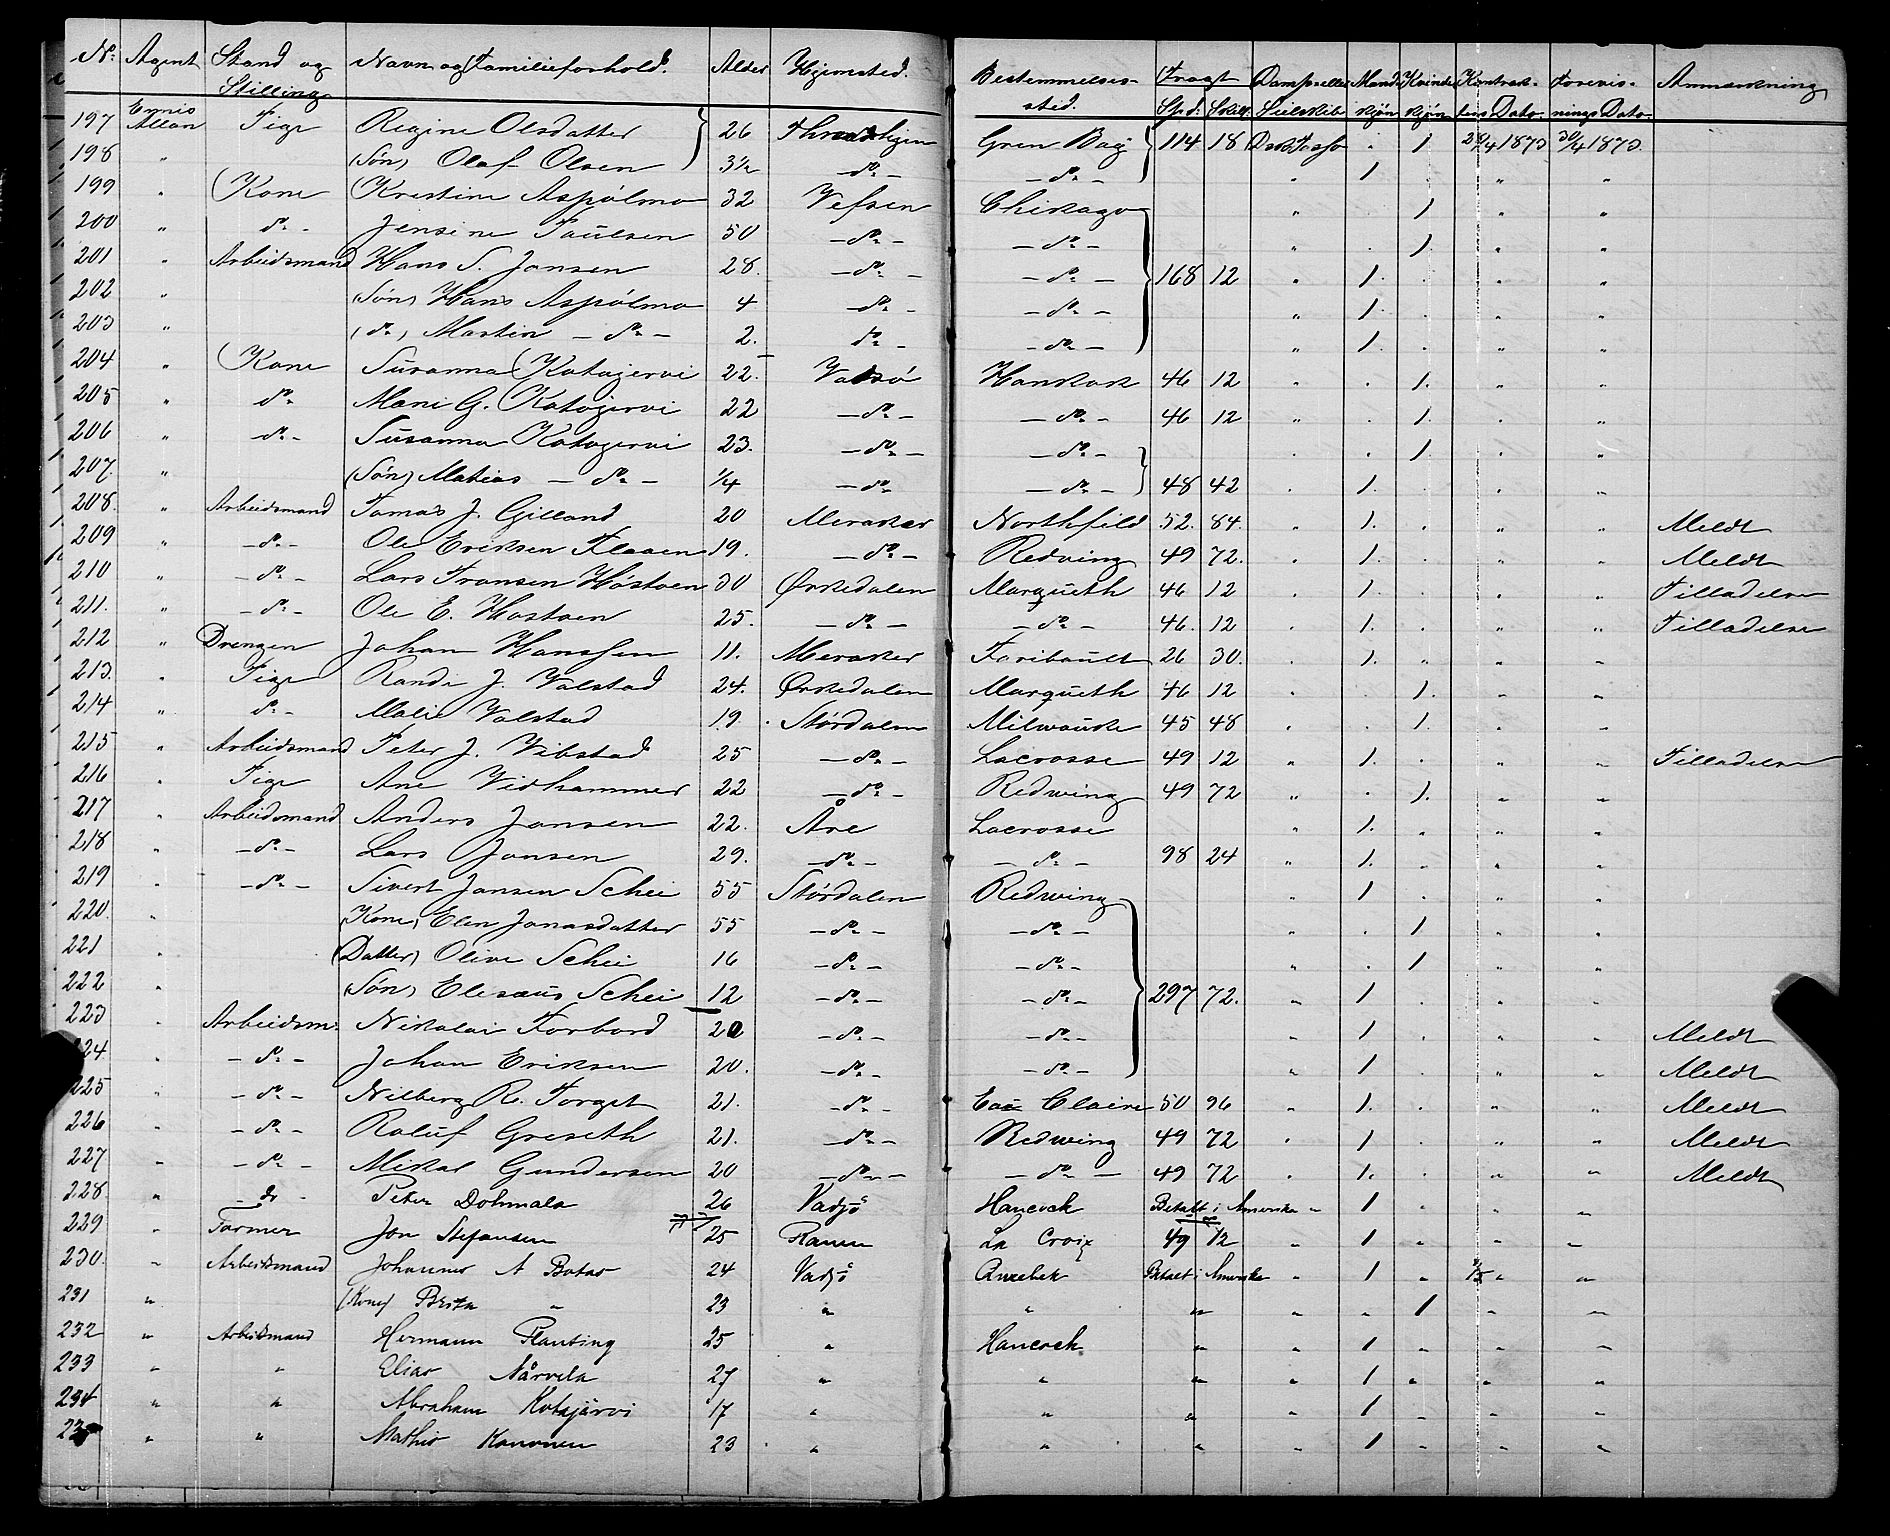 No. Agent Stand og Stilling Navn og Familieforhold. Alder Hjemsted. Bestemmelses-sted. Fragt Spd. Skill. Damp eller Seilskib Mandkjøn Kvindekjøn Kontrak-tens Dato Forevis-nings Dato Anmærkning
197 Ennis Allan Pige Regine Olsdatter 26 Gren Bay 114 18 1 1873 30/4 1873.
198 " (Søn) Olaf Olsen 3½ — do — — do — " 1 " "
199 " Kone Kristine Aspölmo 32 Vefsen Chikago " 1 " "
200 " do - Jensine Paulsen 50 — do — — do — " 1 " "
201 " Arbeidsmand Hans S. Jansen 28. — do — — do — 168 12 " 1 " "
202 " (Søn) Hans Aspölmo 4 — do — — do — " 1 " "
203 " (do) Martin — do — 2. do — — do — " 1 " "
204 " Kone Susanna Katajervi 22. Vadsö Hankok 46 12 " 1. " "
205 " do Marie G. Katajervi 22 — do — — do — 46 12 " 1. " "
206 " do - Susanna Katajervi 23. — do — — do — " 1. " "
207. " (Søn) Matias — do — ¼ — do — — do — 48 42 " 1. " "
208. " Arbeidsmand Tomas J. Gilland 20 Meraker Northfild 52. 84. " 1. " " Meldt
209 " — do — Ole Eriksen Flaaen 19. — do — Redwing 49 72. " 1. " " Meldt
210 " — do — Lars Fransen Høstoen 30 Ørkedalen Marqueth 46 12 " 1. " " Tilladelse
211. " — do — Ole E. Hostoen 25. — do — — do — 46. 12 " 1. " " Tilladelse
212 " Drengen Johan Hanssen 11. Meraker Faribault 26 30. " 1. " "
213. " Pige Randi J. Valstad 24. Ørkedalen Marqueth 46 12 " 1. " "
214 " do - Malie Valstad 19. Stördalen Milwauke 45 48 " 1. " "
215 " Arbeidsmand Peter J. Vibstad 25 — do — Lacrosse 49 12 " 1. " " Tilladelse
216 " Pige Ane Vidhammer 22 — do — Redwing 49 72 " 1. " "
217 " Arbeidsmand Anders Jansen 22. Åre Lacrosse " 1. " "
218 " — do — Lars Jonsen 29. — do — — do — 98 24 " 1. " "
219 " — do — Sivert Jansen Schei 55 Stördalen Redwing 1 " "
220. " (Kone) Elen Jonasdatter 55 — do — — do — " 1 " "
221 " (Datter) Olive Schei 16 — do — — do — " 1 " "
222 " (Søn) Elesæus Schei 12 — do — — do — 297 72. " 1 " "
223 " Arbeidsm. Nikolai Forbord 20 — do — — do — 1 " " Meldt
224 " — do — Johan Eriksen 20. — do — — do — " 1 " " Meldt
225 " — do — Nilberg R. Forget 21. — do — Eau Claire 50 96 " 1. " " Meldt
226 " — do — Roluf Greseth 21. — do — Redwing 49 72 " 1 " " Meldt
227 " — do — Mikal Gundersen 20 — do — — do — 49 72 " 1. " " Meldt
228. " do - Peter Dohmala 26 Vadsö Hancock Betalt i Amerika " 1 " "
229 " Farmer Jon Stefansen 25 Ranen La Croix 49 12 " 1 " "
230. " Arbeidsmand Johannes A Botas 24 Vadsö Betalt i Amerika " 1 " "
231 " (Kone) Brita " 23 " " " " 1 " "
232 " Arbeidsmand Hermann Planting 25 " Hancock " 1 " "
233 " " Elias Närvela 27 " " " " 1 " "
234 " " Abraham Kotajärvi 17 " " " " 1 " "
235 " " Mathis Kanonen 23 " " " " 1 " "